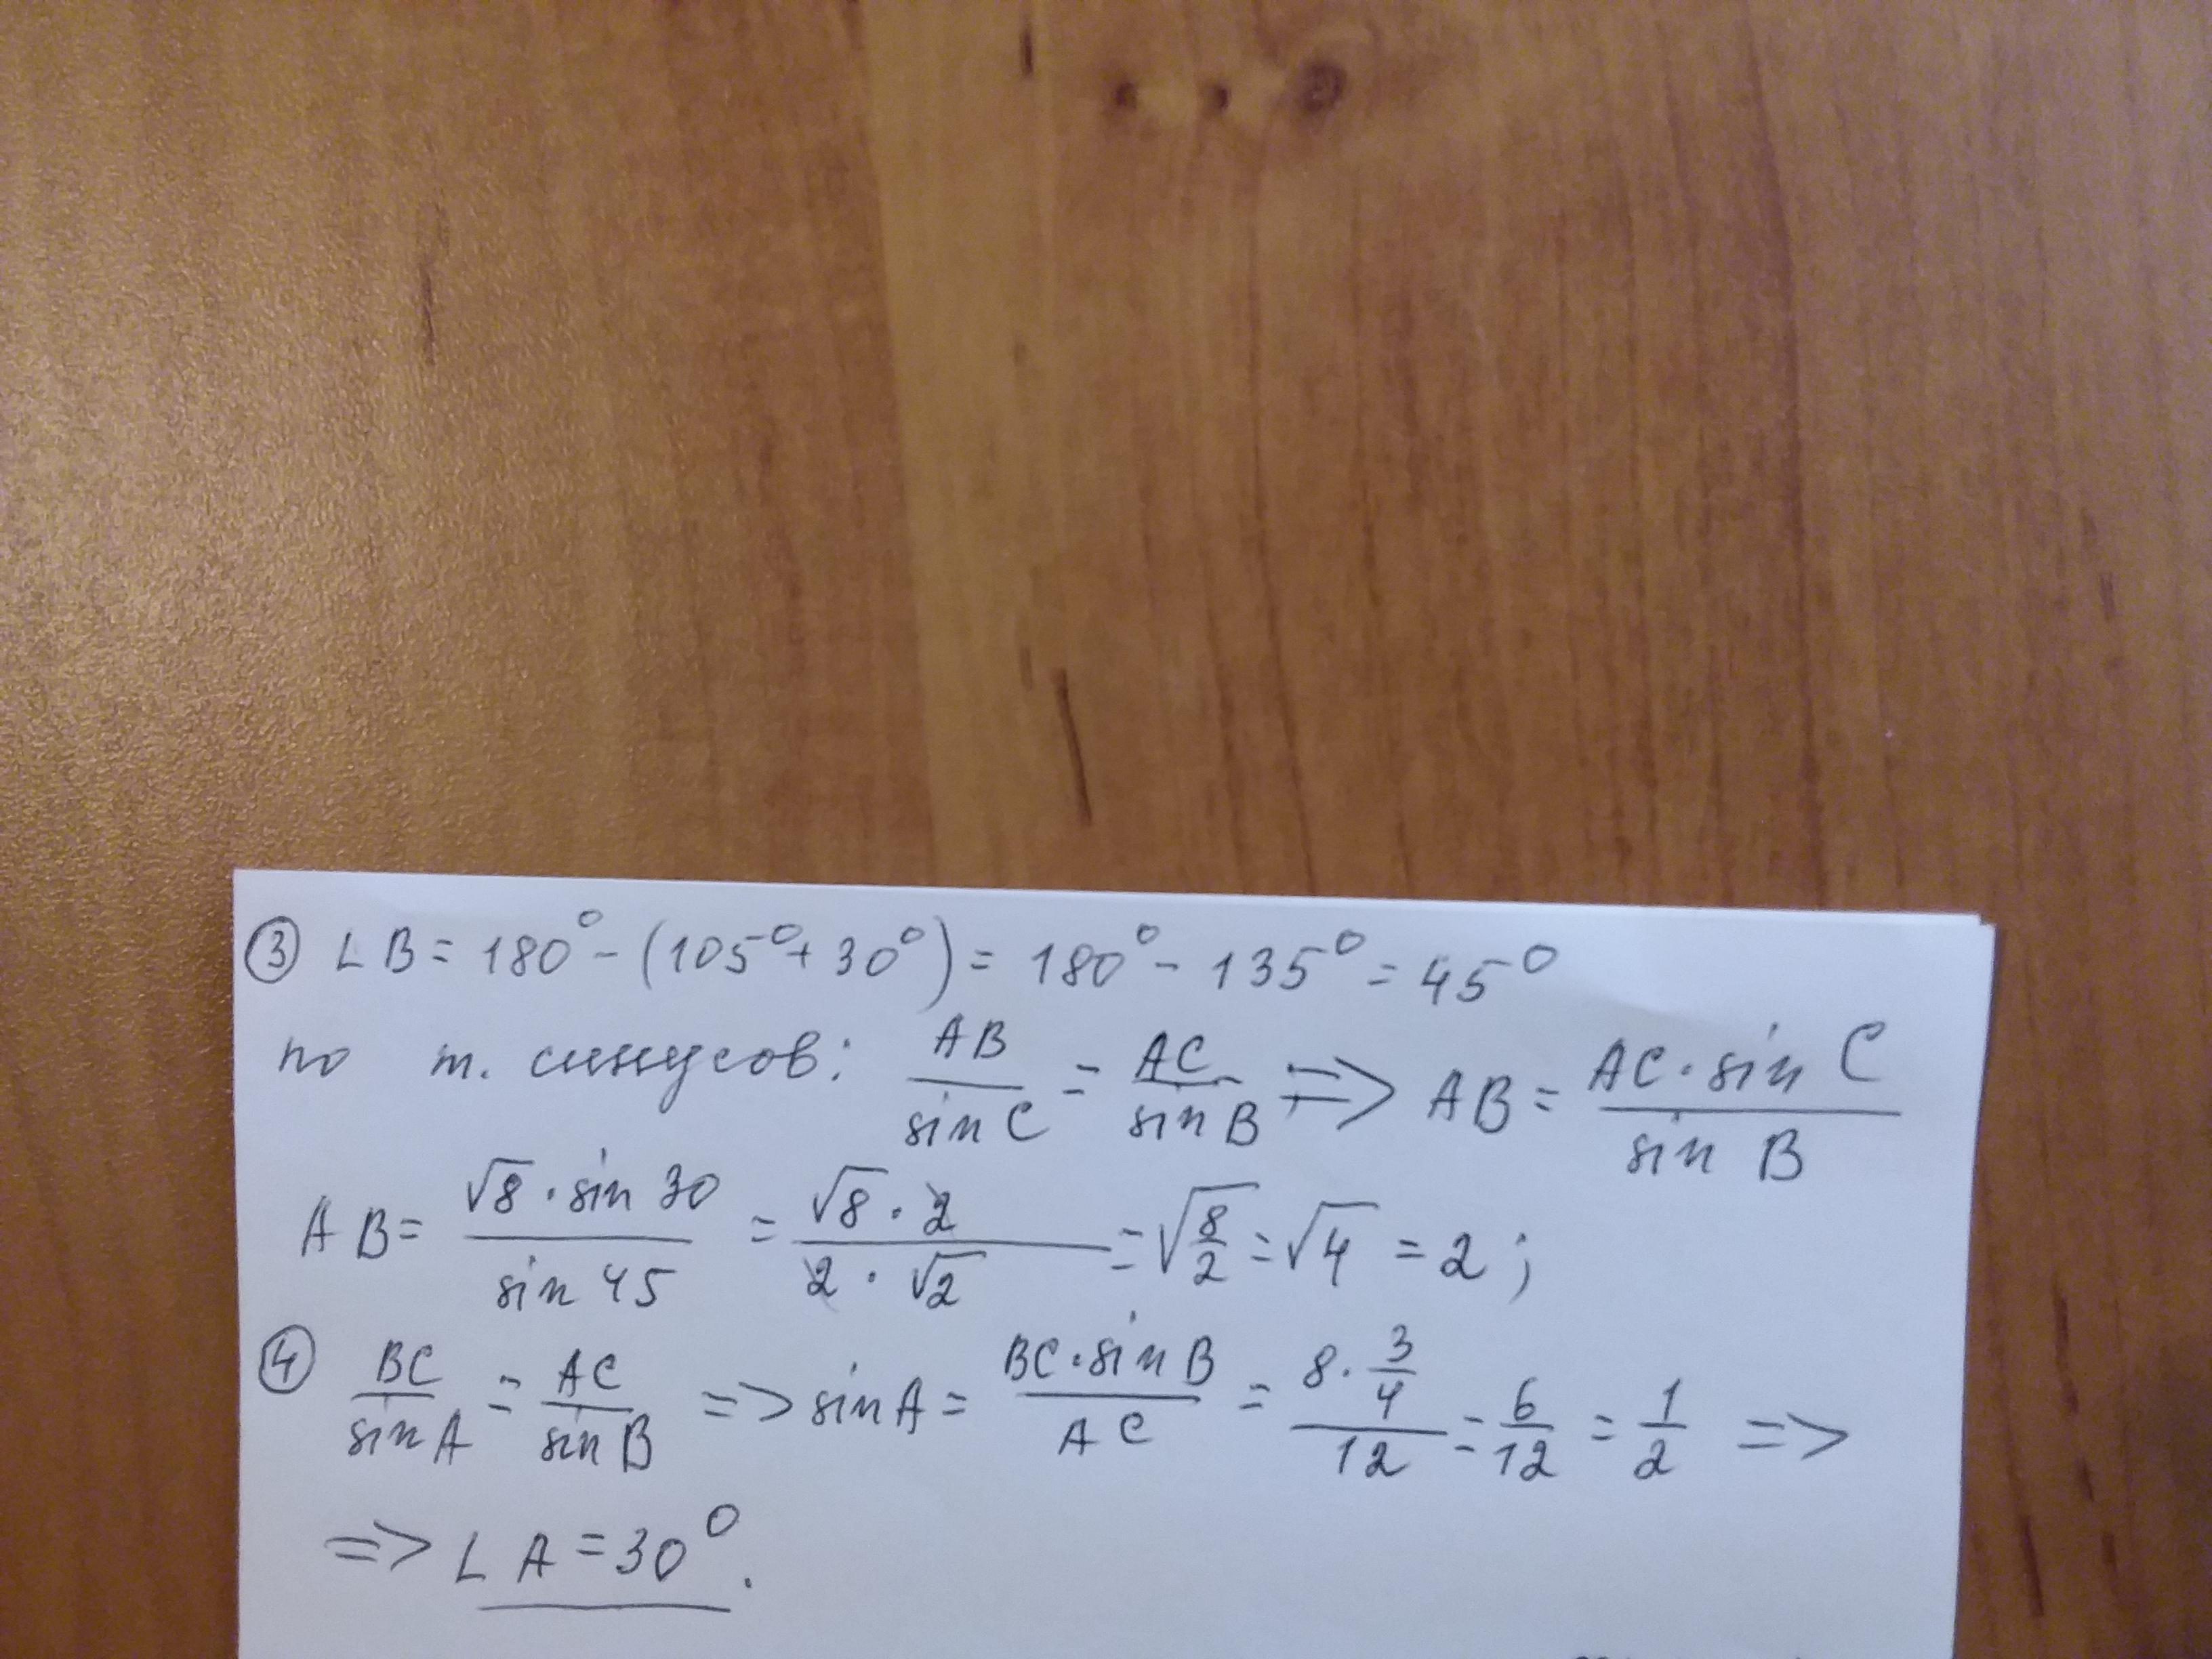 ③ ∠B = 180° - (105° + 30°) = 180° - 135° = 45°
по т. синусов: AB/sin C = AC/sin B => AB = AC · sin C / sin B
AB = √8 · sin 30 / sin 45 = √8 · 2 / 2 · √2 = √8/2 = √4 = 2 ;
④ BC/sin A = AC/sin B => sin A = BC · sin B / AC = 8 · 3/4 / 12 = 6/12 = 1/2 =>
=> ∠A = 30° .